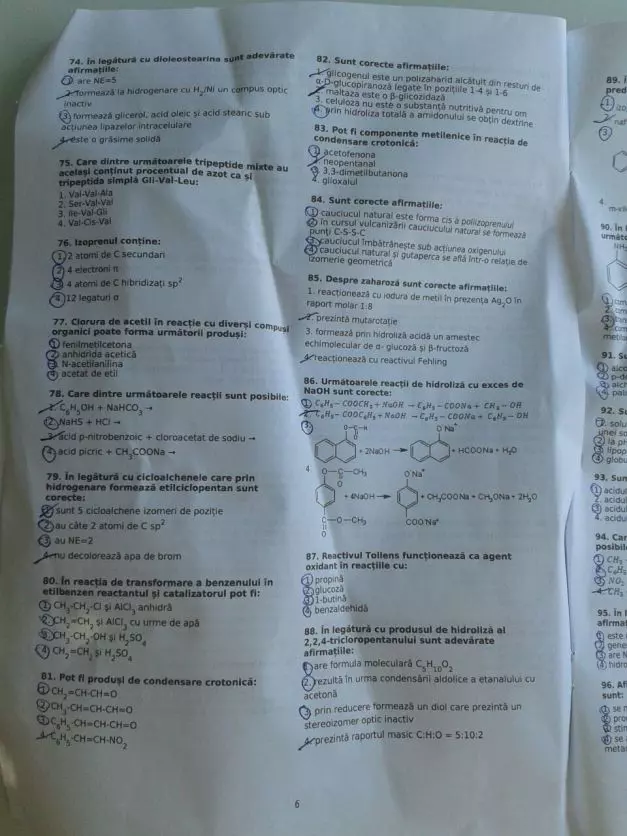 74. În legătură cu dioleostearina sunt adevărate
afirmațiile:
1. are NE=5
2. formează la hidrogenare cu H2/Ni un compus optic
inactiv
3. formează glicerol, acid oleic și acid stearic sub
acțiunea lipazelor intracelulare
4. este o grăsime solidă
75. Care dintre următoarele tripeptide mixte au
același conținut procentual de azot ca și
tripeptida simplă Gli-Val-Leu:
1. Val-Val-Ala
2. Ser-Val-Val
3. Ile-Val-Gli
4. Val-Cis-Val
76. Izoprenul conține:
1. 2 atomi de C secundari
2. 4 electroni π
3. 4 atomi de C hibridizați sp2
4. 12 legaturi σ
77. Clorura de acetil în reacție cu diverși compuși
organici poate forma următorii produși:
1. fenilmetilcetona
2. anhidrida acetică
3. N-acetilanilina
4. acetat de etil
78. Care dintre următoarele reacții sunt posibile:
1. C6H5OH + NaHCO3 →
2. NaHS + HCl →
3. acid p-nitrobenzoic + cloroacetat de sodiu →
4. acid picric + CH3COONa →
79. În legătură cu cicloalchenele care prin
hidrogenare formează etilciclopentan sunt
corecte:
1. sunt 5 cicloalchene izomeri de poziție
2. au câte 2 atomi de C sp2
3. au NE=2
4. nu decolorează apa de brom
80. În reacția de transformare a benzenului în
etilbenzen reactantul și catalizatorul pot fi:
1. CH3-CH2-Cl și AlCl3 anhidră
2. CH2=CH2 și AlCl3 cu urme de apă
3. CH3-CH2-OH și H2SO4
4. CH2=CH2 și H2SO4
81. Pot fi produși de condensare crotonică:
1. CH2=CH-CH=O
2. CH3-CH=CH-CH=O
3. C6H5-CH=CH-CH=O
4. C6H5-CH=CH-NO2
82. Sunt corecte afirmațiile:
1. glicogenul este un polizaharid alcătuit din resturi de
α-D-glucopiranoză legate în pozițiile 1-4 și 1-6
2. maltaza este o β-glicozidază
3. celuloza nu este o substanță nutritivă pentru om
4. prin hidroliza totală a amidonului se obțin dextrine
83. Pot fi componente metilenice în reacția de
condensare crotonică:
1. acetofenona
2. neopentanal
3. 3,3-dimetilbutanona
4. glioxalul
84. Sunt corecte afirmațiile:
1. cauciucul natural este forma cis a poliizoprenului
2. în cursul vulcanizării cauciucului natural se formează
punți C-S-S-C
3. cauciucul îmbătrânește sub acțiunea oxigenului
4. cauciucul natural și gutaperca se află într-o relație de
izomerie geometrică
85. Despre zaharoză sunt corecte afirmațiile:
1. reacționează cu iodura de metil în prezența Ag2O în
raport molar 1:8
2. prezintă mutarotație
3. formează prin hidroliză acidă un amestec
echimolecular de α- glucoză și β-fructoză
4. reacționează cu reactivul Fehling
86. Următoarele reacții de hidroliză cu exces de
NaOH sunt corecte:
1. C6H5 − COOCH3 + NaOH → C6H5 − COONa + CH3 − OH
2. C6H5 − COOC6H5 + NaOH → C6H5 − COONa + C6H5 − OH
3.
O-C-H
O
+ 2NaOH
O-Na+
+ HCOONa + H2O
4.
O-C-CH3
O
+ 4NaOH
C-O-CH3
O
O-Na+
COO-Na+
+ CH3COONa + CH3ONa + 2H2O
87. Reactivul Tollens funcționează ca agent
oxidant în reacțiile cu:
1. propină
2. glucoză
3. 1-butină
4. benzaldehidă
88. În legătură cu produsul de hidroliză al
2,2,4-tricloropentanului sunt adevărate
afirmațiile:
1. are formula moleculară C5H10O2
2. rezultă în urma condensării aldolice a etanalului cu
acetonă
3. prin reducere formează un diol care prezintă un
stereoizomer optic inactiv
4. prezintă raportul masic C:H:O = 5:10:2
6
89. Î
pred
1
3
4.
m-xil
90. În
următo
NH
91. Su
alco
92. Su
solu
la ph
lipop
globu
93. Sun
1. acidul
2. acidul
3. acidul
4. acidu
94. Car
posibil
1. CH3
2. C6H5
3. NO2
4. CH3
95. În l
afirmaț
este
gene
are N
hidro
96. Af
sunt:
se n
pro
stin
se
meta